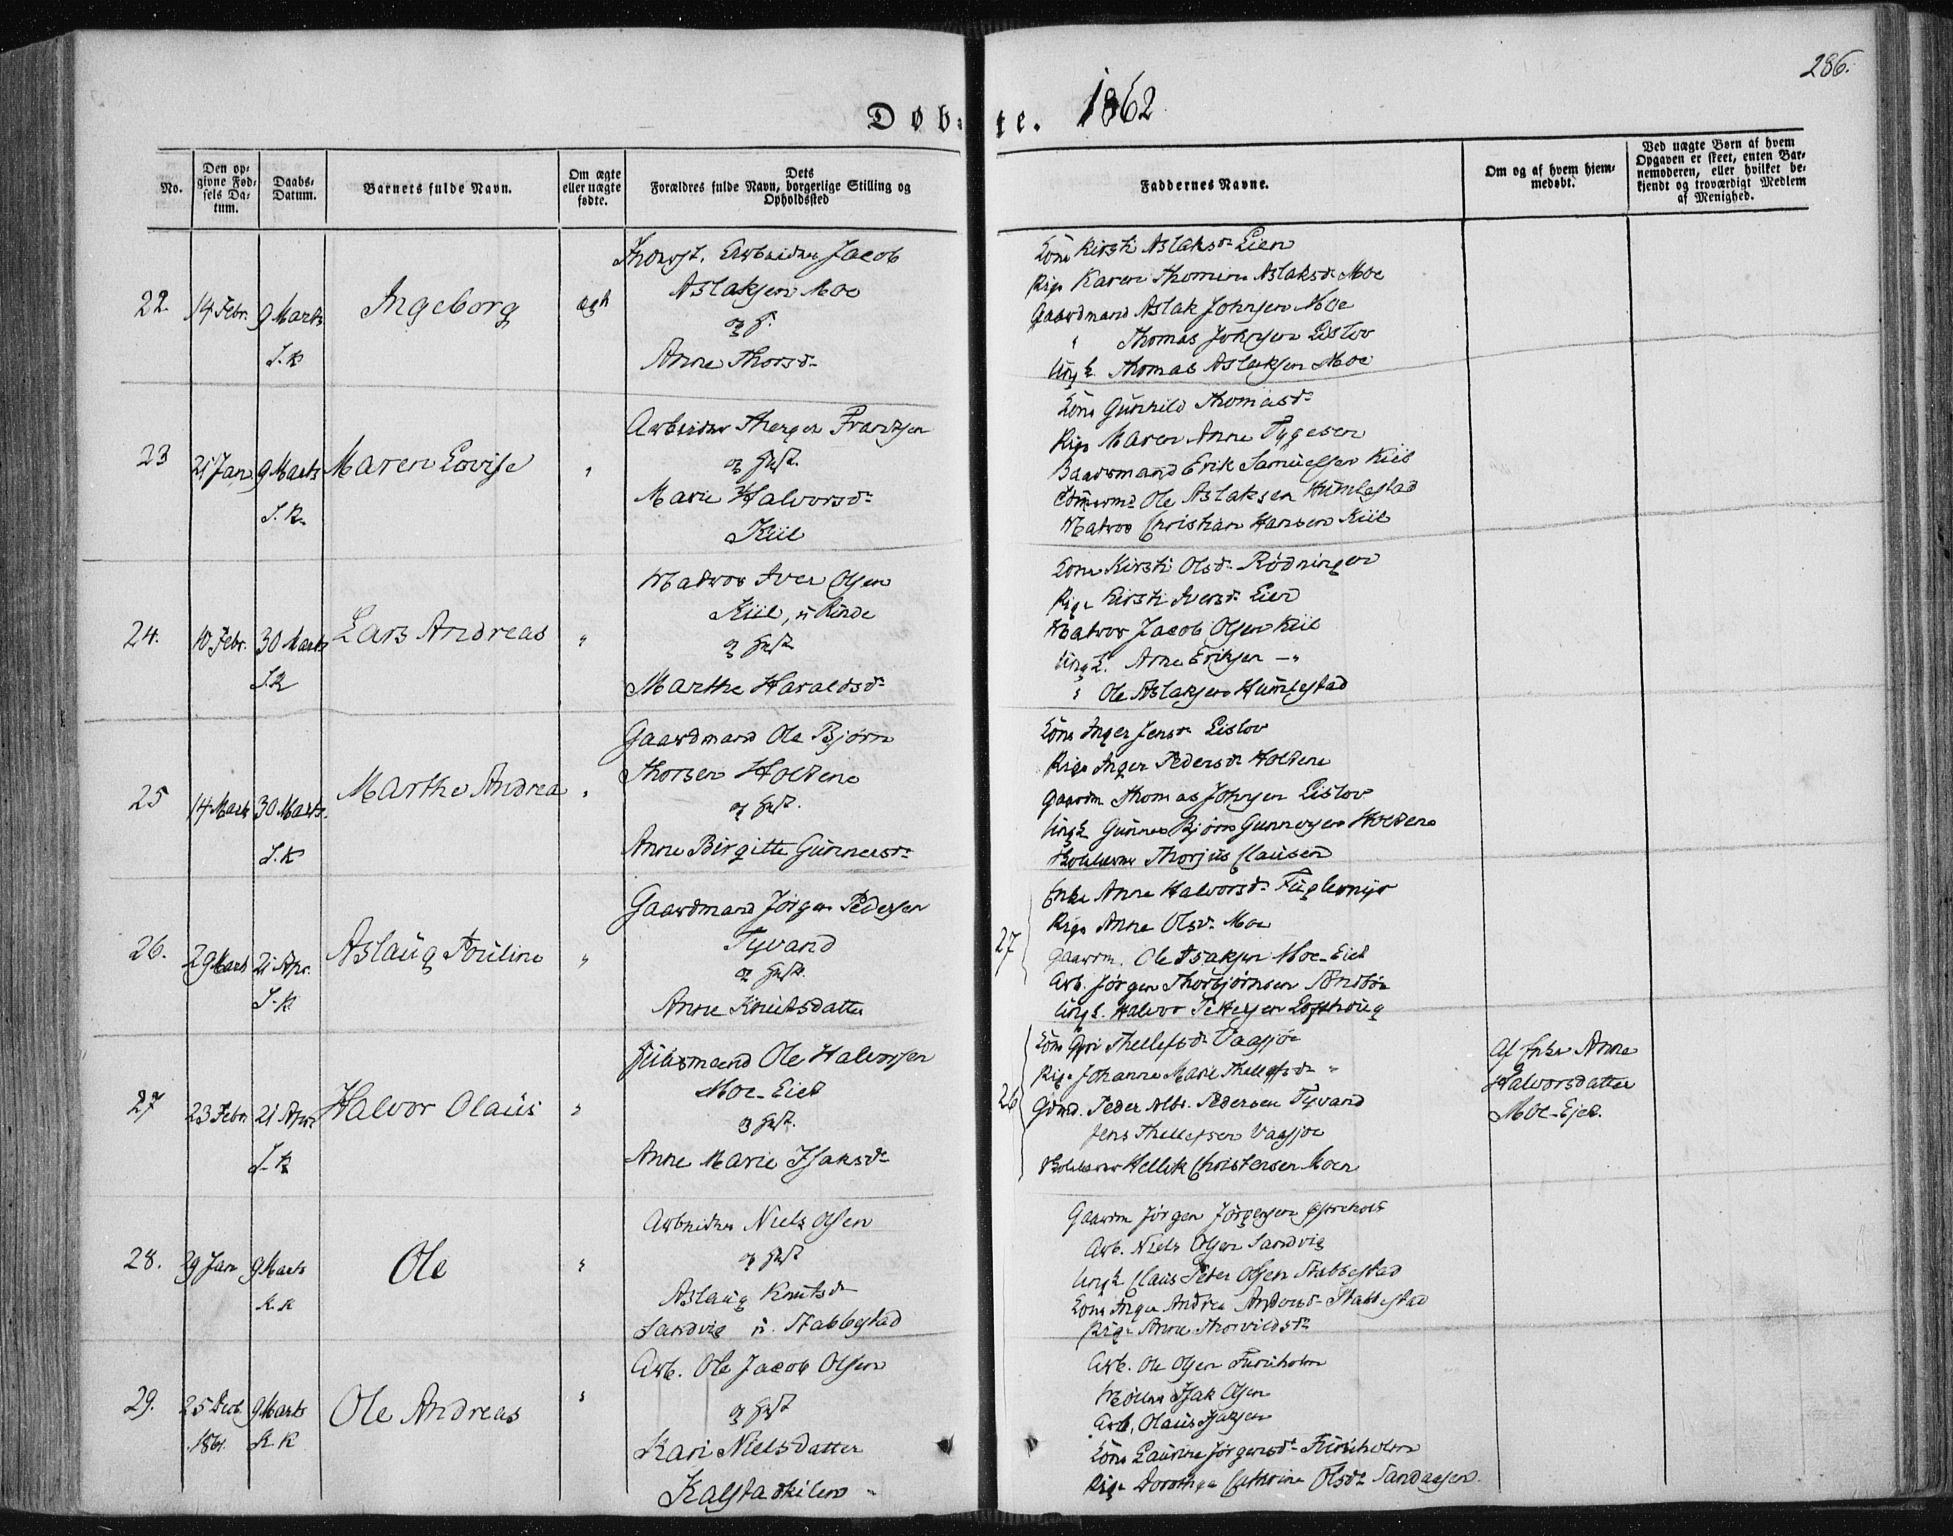 286.
Døbte. 1862
No.
Den opgivne Fødsels Datum.
Daabs-Datum.
Barnets fulde Navn.
Om ægte eller uægte fødte.
Dets Forældres fulde Navn, borgerlige Stilling og Opholdssted
Faddernes Navne.
Om og af hvem hjemmedøbt.
Ved uægte Børn af hvem Opgaven er skeet, enten Barnemoderen, eller hvilket bekjendt og troværdigt Medlem af Menighed.
22. 14 Febr. 9 Marts Ingeborg ægt
S.K
Arbeider Jacob
Aslaksen Moe
og H.
Anne Thorsd.
Kone Kirsti Aslaksd. Lien
Pige Karen Thomine Aslaksd. Moe
Gaardmand Aslak Johnsen Moe
" Thomas Johnsen Eislov
Ungk. Thomas Aslaksen Moe
23 21 Jan. 9 Marts Maren Lovise "
S.K.
Arbeider Therger Frantzen
og Hust.
Marie Halvorsd.
Kiil
Kone Gunhild Thomasd.
Pige Maren Anne Tygesen
Baadsmand Erik Samuelsen Kiil
Ole Aslaksen Humlestad
Matros Christian Hansen Kiil
24. 10 Febr. 30 Marts Lars Andreas "
S.K
Matros Iver Olsen
Kiil, u. Rinde
og Hust.
Marthe Haraldsd.
Kone Kirsti Olsd. Rødningen
Pige Kirsti Iversd. Eied
Matros Jacob Olsen Kiil
Ungk. Arne Eriksen — "
" Ole Aslaksen Humlestad
25 14 Marts 30 Marts. Marthe Andrea "
S.K
Gaardmand Ole Bjørn
Thorsen Holtene
og Hust.
Anne Birgitte Gunnersd.
Kone Inger Jensd. Eislov
Pige Inger Pedersd. Holtene
Gaardm. Thomas Johnsen Eislov
Ungk. Gunner Bjørn Gunnersen Holtene
Skolelærer Thorjus Clausen
26. 29 Marts 21 Apr. Aslaug Pouline "
S.K
Gaardmand Jørgen Pedersen
Tyvand
og Hust.
Anne Knutsdatter
27
Enke Anne Halvorsd. Fuglemyr
Pige Anne Olsd. Moe
Gaardm. Ole Isaksen Moe-Eiet
Arb. Jørgen Thorbjørnsen
Ungk. Halvor Pettersen Lofthoug
27 23 Febr. 21 Apr. Halvor Olaus "
S.K
Huusmand Ole Halvorsen
Moe-Eiet
og Hust.
Anne Marie Isaksd.
26
Kone Thellefsd. Vagsjøe
Pige Johanne Marie Thellefsd. "
Gdmd. Peder Alb. Pedersen Tyvand
Jens Thellefsen Vagsjøe
Skolelærer Hellik Christensen Moen
Af Enke Anne
Halvorsdatter
Moe-Ejet.
28. 29 Jan 9 Marts Ole "
K.K
Arbeider Niels Olsen
og Hust
Aslaug Knutsd.
Sandvig u. Stabbestad
Gaardm. Jørgen Jørgensen
Arb. Niels Olsen Sandvig
Ungk. Claus Peter Olsen Stabbestad
Kone Inger Andrea Andersd. Stabbestad
Pige Anne Thorvildsd.
29. 25 Decb. 9 Marts Ole Andreas "
1861. K.K
Arb. Ole Jacob Olsen
og Hust
Kari Nielsdatter
Kalstadkilen
Arb. Ole Olsen Furuholm
Møller Isak Olsen
Arb. Olaus Isaksen
Kone Laurine Jørgensd. Furuholm
Pige Dorothea Cathrine Olsd. Sandaasen.